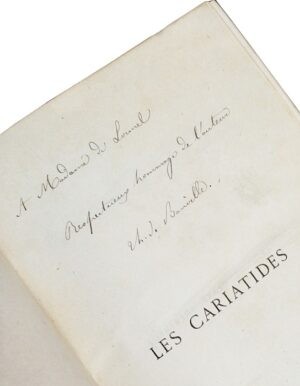 A Madame de
Respectueux hommage de l'auteur
Th. de Banville.
LES CARIATIDES